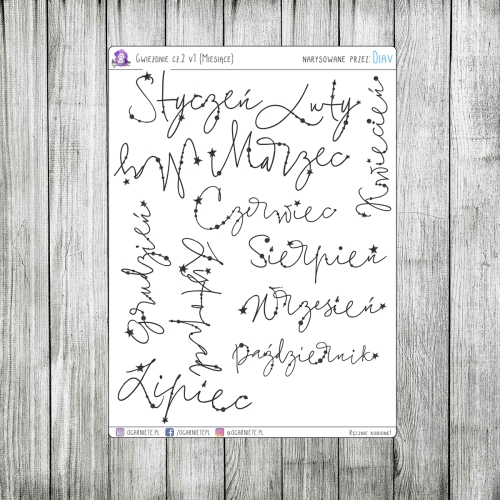 Gwiezdnie cz.2 v1 (Miesiące)
narysowane przez: Diav
Styczeń
Luty
Kwiecień
Maj
Marzec
Czerwiec
Grudzień
Listopad
Sierpień
Wrzesień
Październik
Lipiec
ogarniete.pl
/ogarnietepl
@ogarniete.pl
Ręcznie robione!